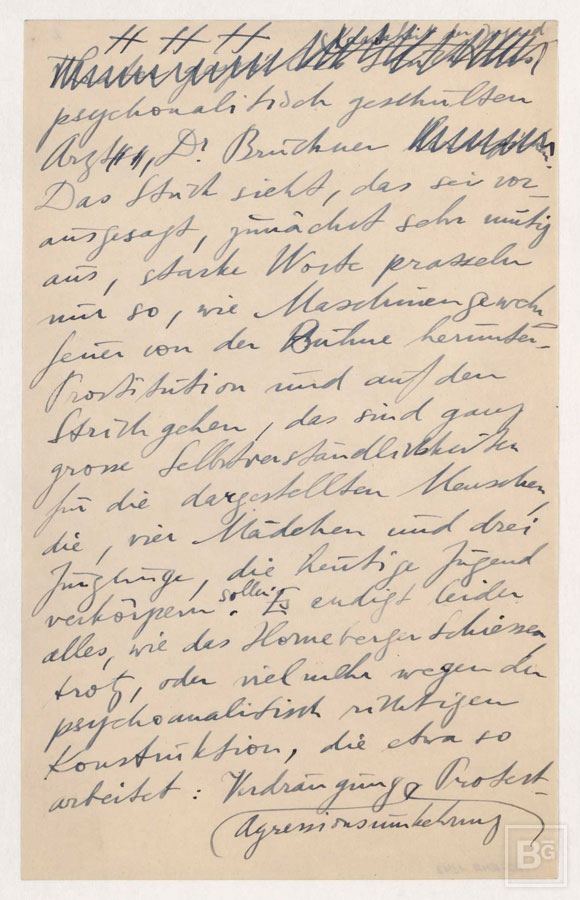 psychoanalitisch geschulten
Arztes, Dr Bruckner
Das Stück sieht, das sei vor-
ausgesagt, zunächst sehr mutig
aus, starke Worte prasseln
nur so, wie Maschinengewehr
feuer von der Bühne herunter-
Prostitution und auf den
Strich gehen, das sind ganz
grosse Selbstverständlichkeiten
für die dargestellten Menschen,
die, vier Mädchen und drei
Jünglinge, die heutige Jugend
verkörpern sollen. Es endigt leider
alles, wie das Horneberger Schiessen,
trotz, oder vielmehr wegen der
psychoanalitisch richtigen
Konstruktion, die etwa so
arbeitet: Verdrängung, Protest-
Agressionsumkehrung
BG